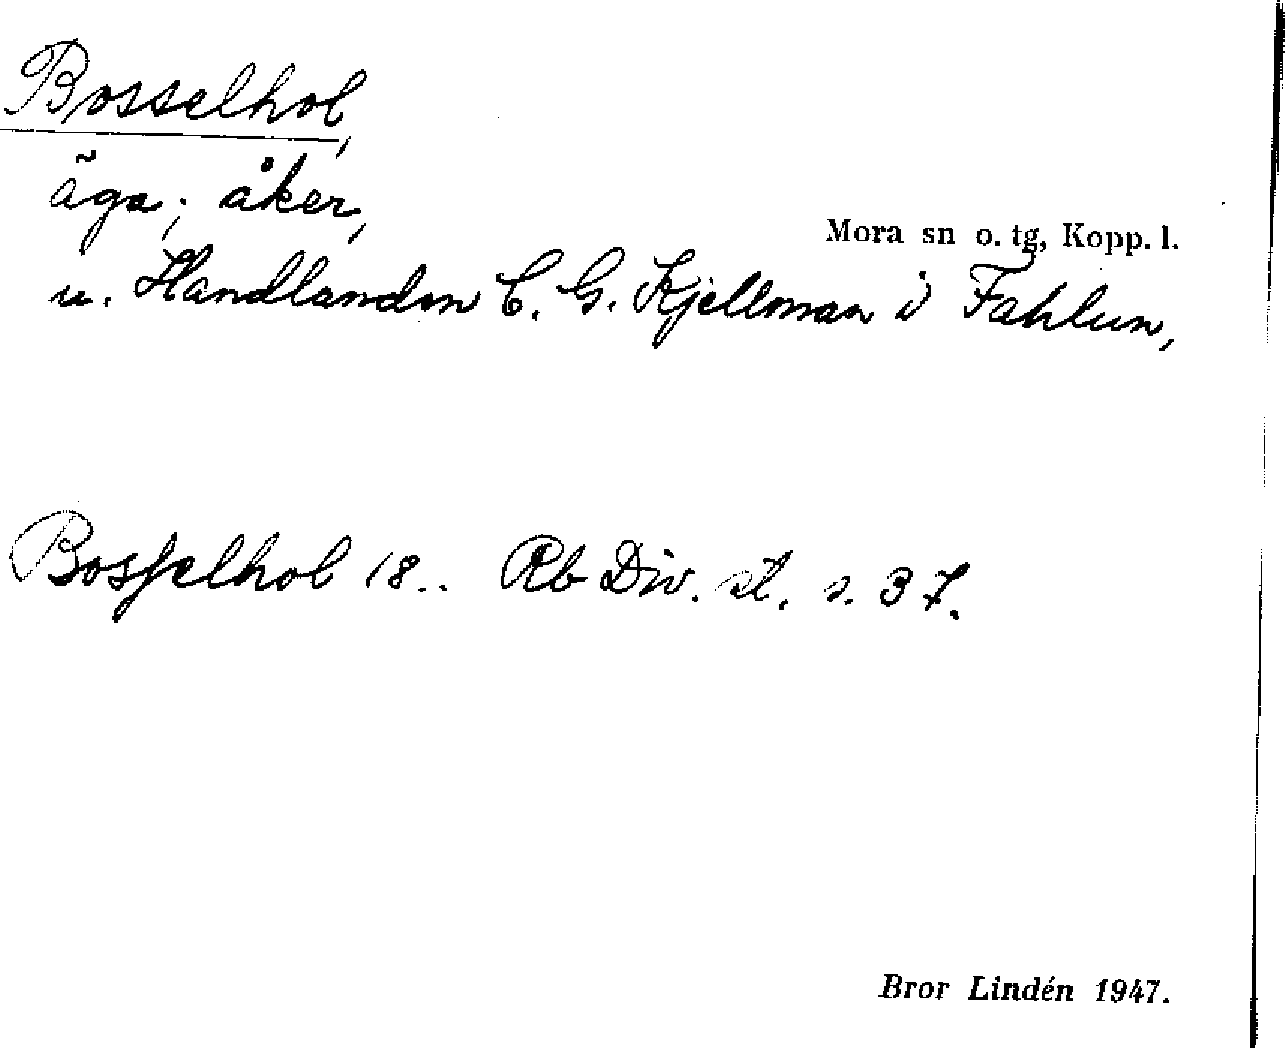 Bosselhol,
äga; åker,
Mora sn o. tg, Kopp. l.
u. Handlanden C. G. Kjellman i Fahlun,
Bosſelhol 18.. Rb Div. st. s. 37.
Bror Lindén 1947.